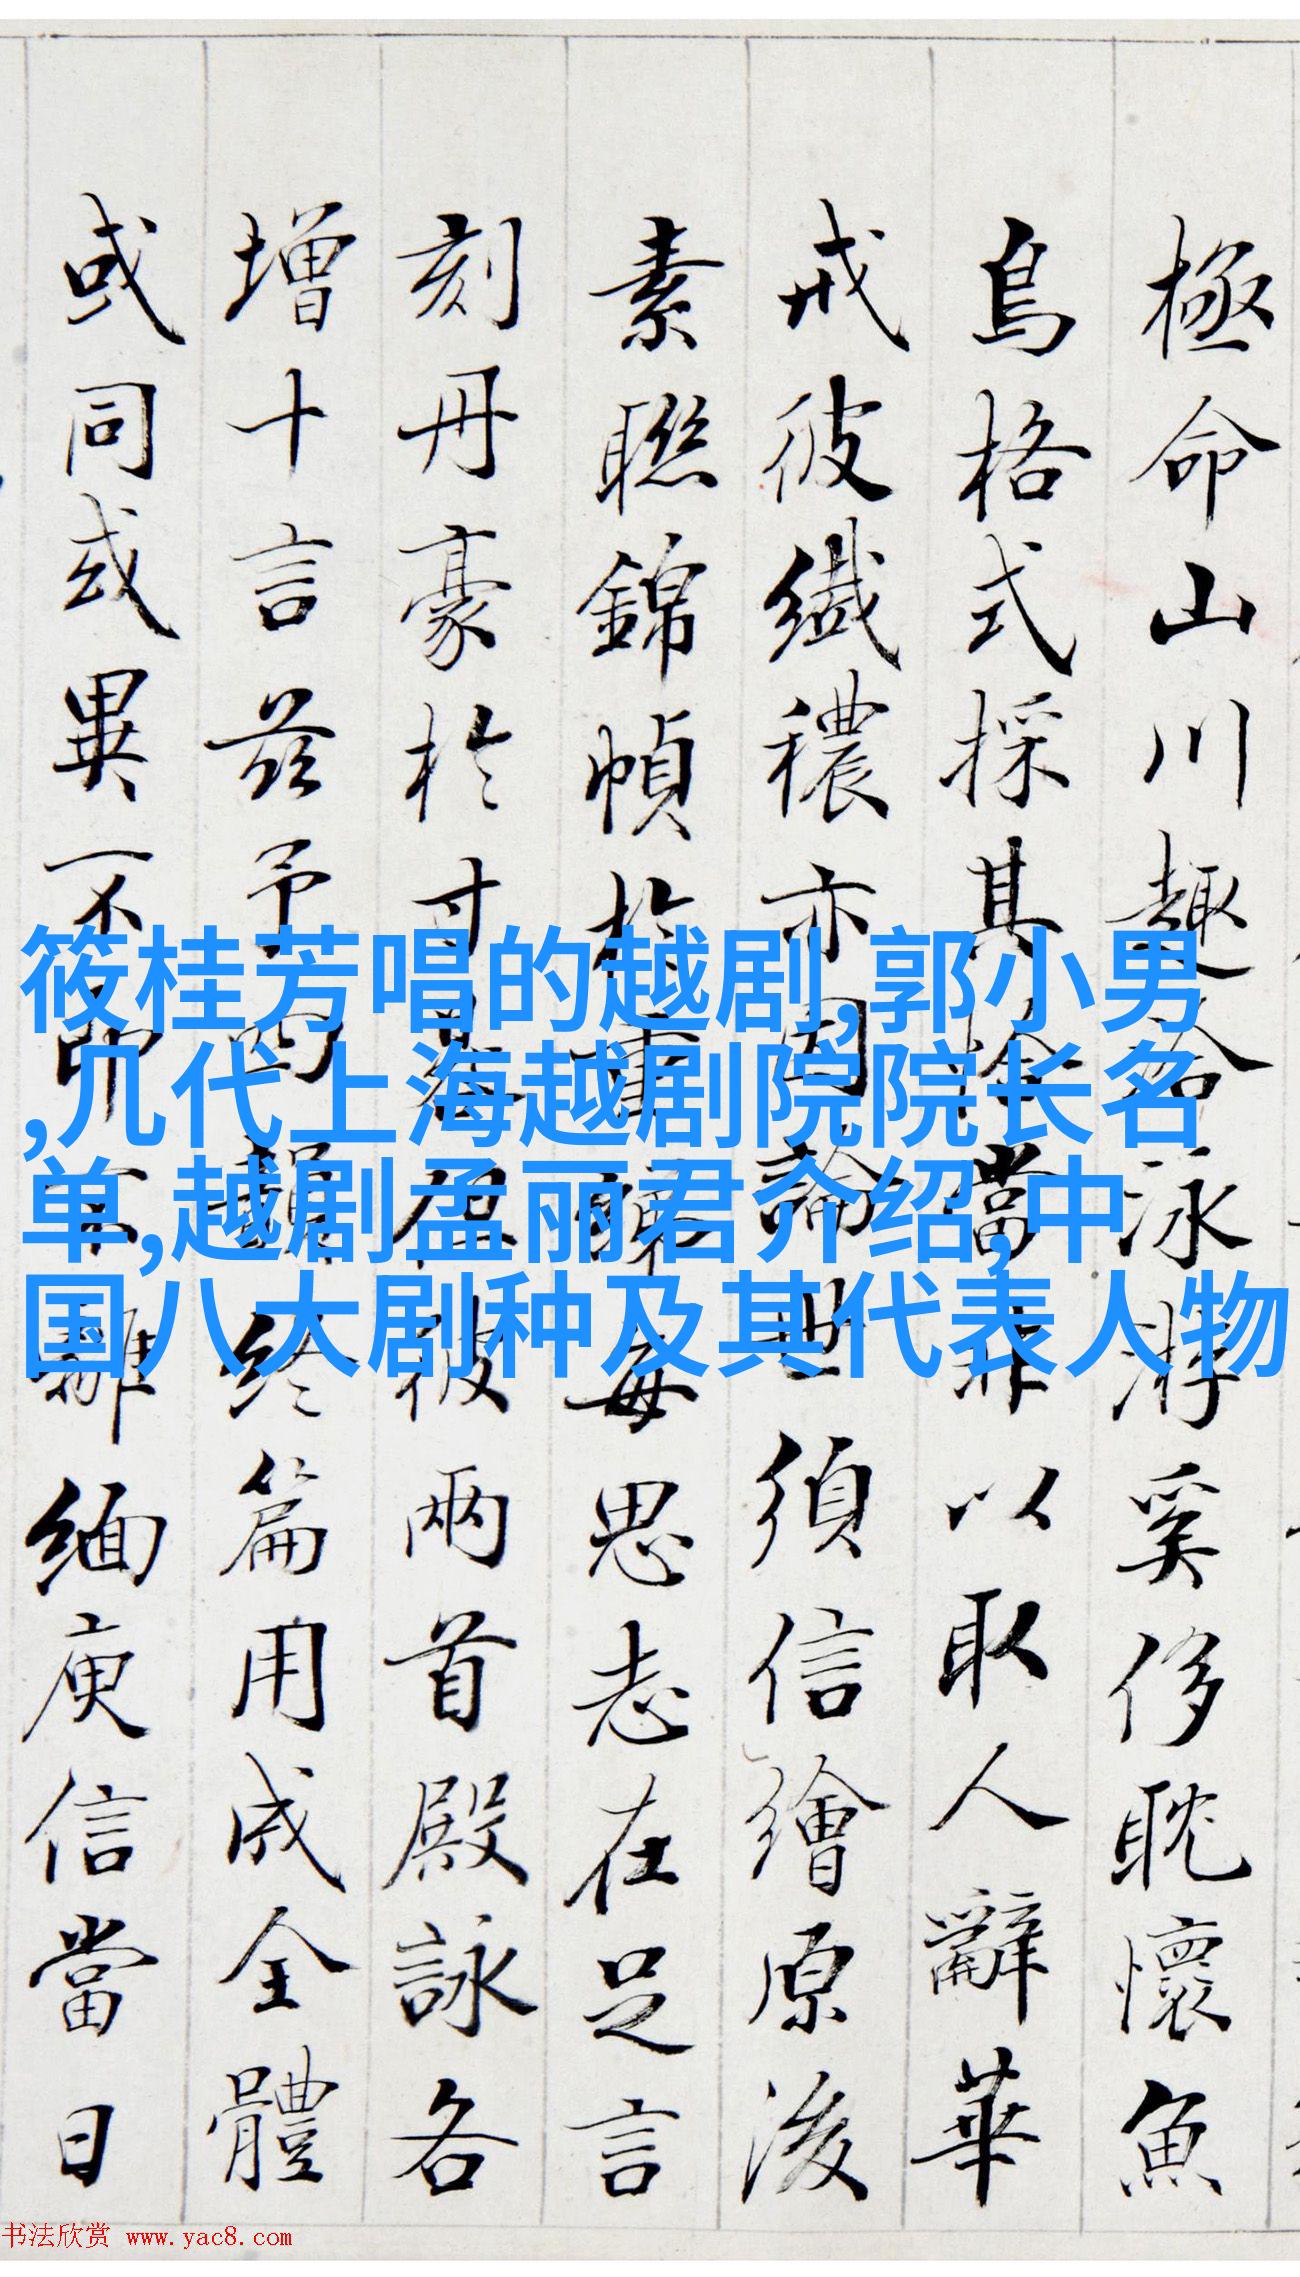 極命山川趣合泳游奚侈耽懷魚
鳥格式採其當非以取人辭華
戒彼纖穠亦因論世須信繪原後
素聯錦幀於每思志在足言
刻丹豪於寸彼兩首殿詠各
增十言茲予終篇用成全體
或同或異不即不離緬庾信當日
筱桂芳唱的越剧,郭小男
,几代上海越剧院院长名
单,越剧孟丽君介绍,中
国八大剧种及其代表人物
书法欣赏 www.yac8.com